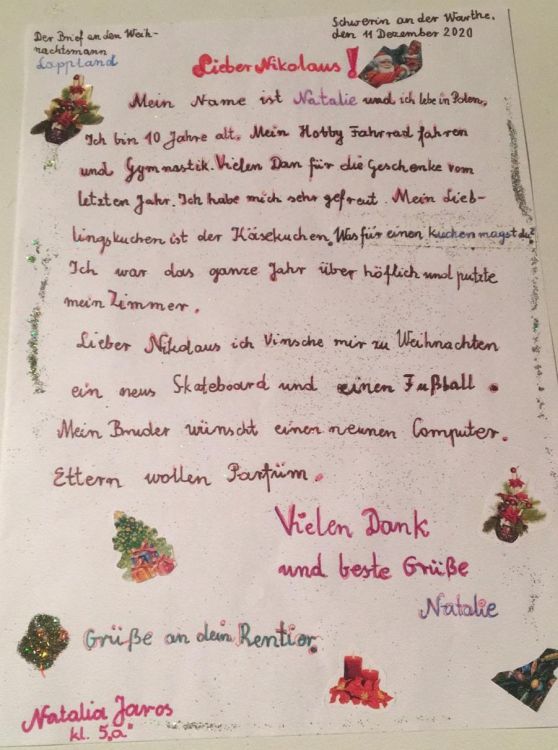 Der Brief an den Weih-
nachtsmann
Lappland
Schwerin an der Warthe,
den 11 Dezember 2020
Lieber Nikolaus!
Mein Name ist Natalie und ich lebe in Polen,
Ich bin 10 Jahre alt. Mein Hobby Fahrrad fahren
und Gymnastik. Vielen Dan für die Geschenke vom
letzten Jahr. Ich habe mich sehr gefreut. Mein Lieb-
lingskuchen ist der Käsekuchen. Was für einen kuchen magst du?
Ich war das ganze Jahr über höflich und putzte
mein Zimmer.
Lieber Nikolaus ich Vinsche mir zu Weihnachten
ein neus Skateboard und einen Fußball.
Mein Bruder wünscht einen neunen Computer.
Ettern wollen Parfüm.
Vielen Dank
und beste Grüße
Natalie
Grüße an dein Rentior.
Natalia Jaros
kl. 5„a"